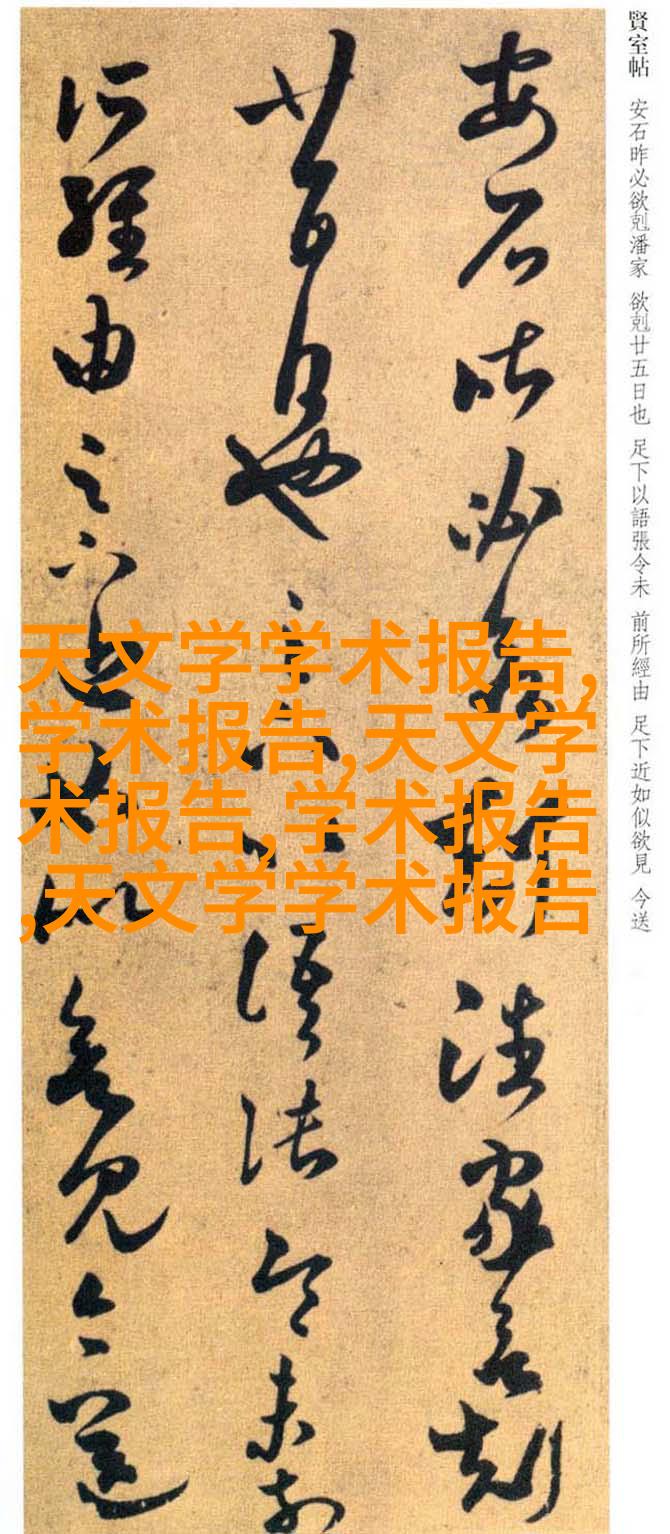 賢室帖 安石昨必欲剋潘家 欲剋廿五日也 足下以語張令未 前所經由 足下近如似欲見 今送
安石昨必欲剋潘家欲剋
廿五日也足下以語張令未前
所經由足下近如似欲見今送
天文学学术报告,
学术报告,天文学
术报告,学术报告
,天文学学术报告